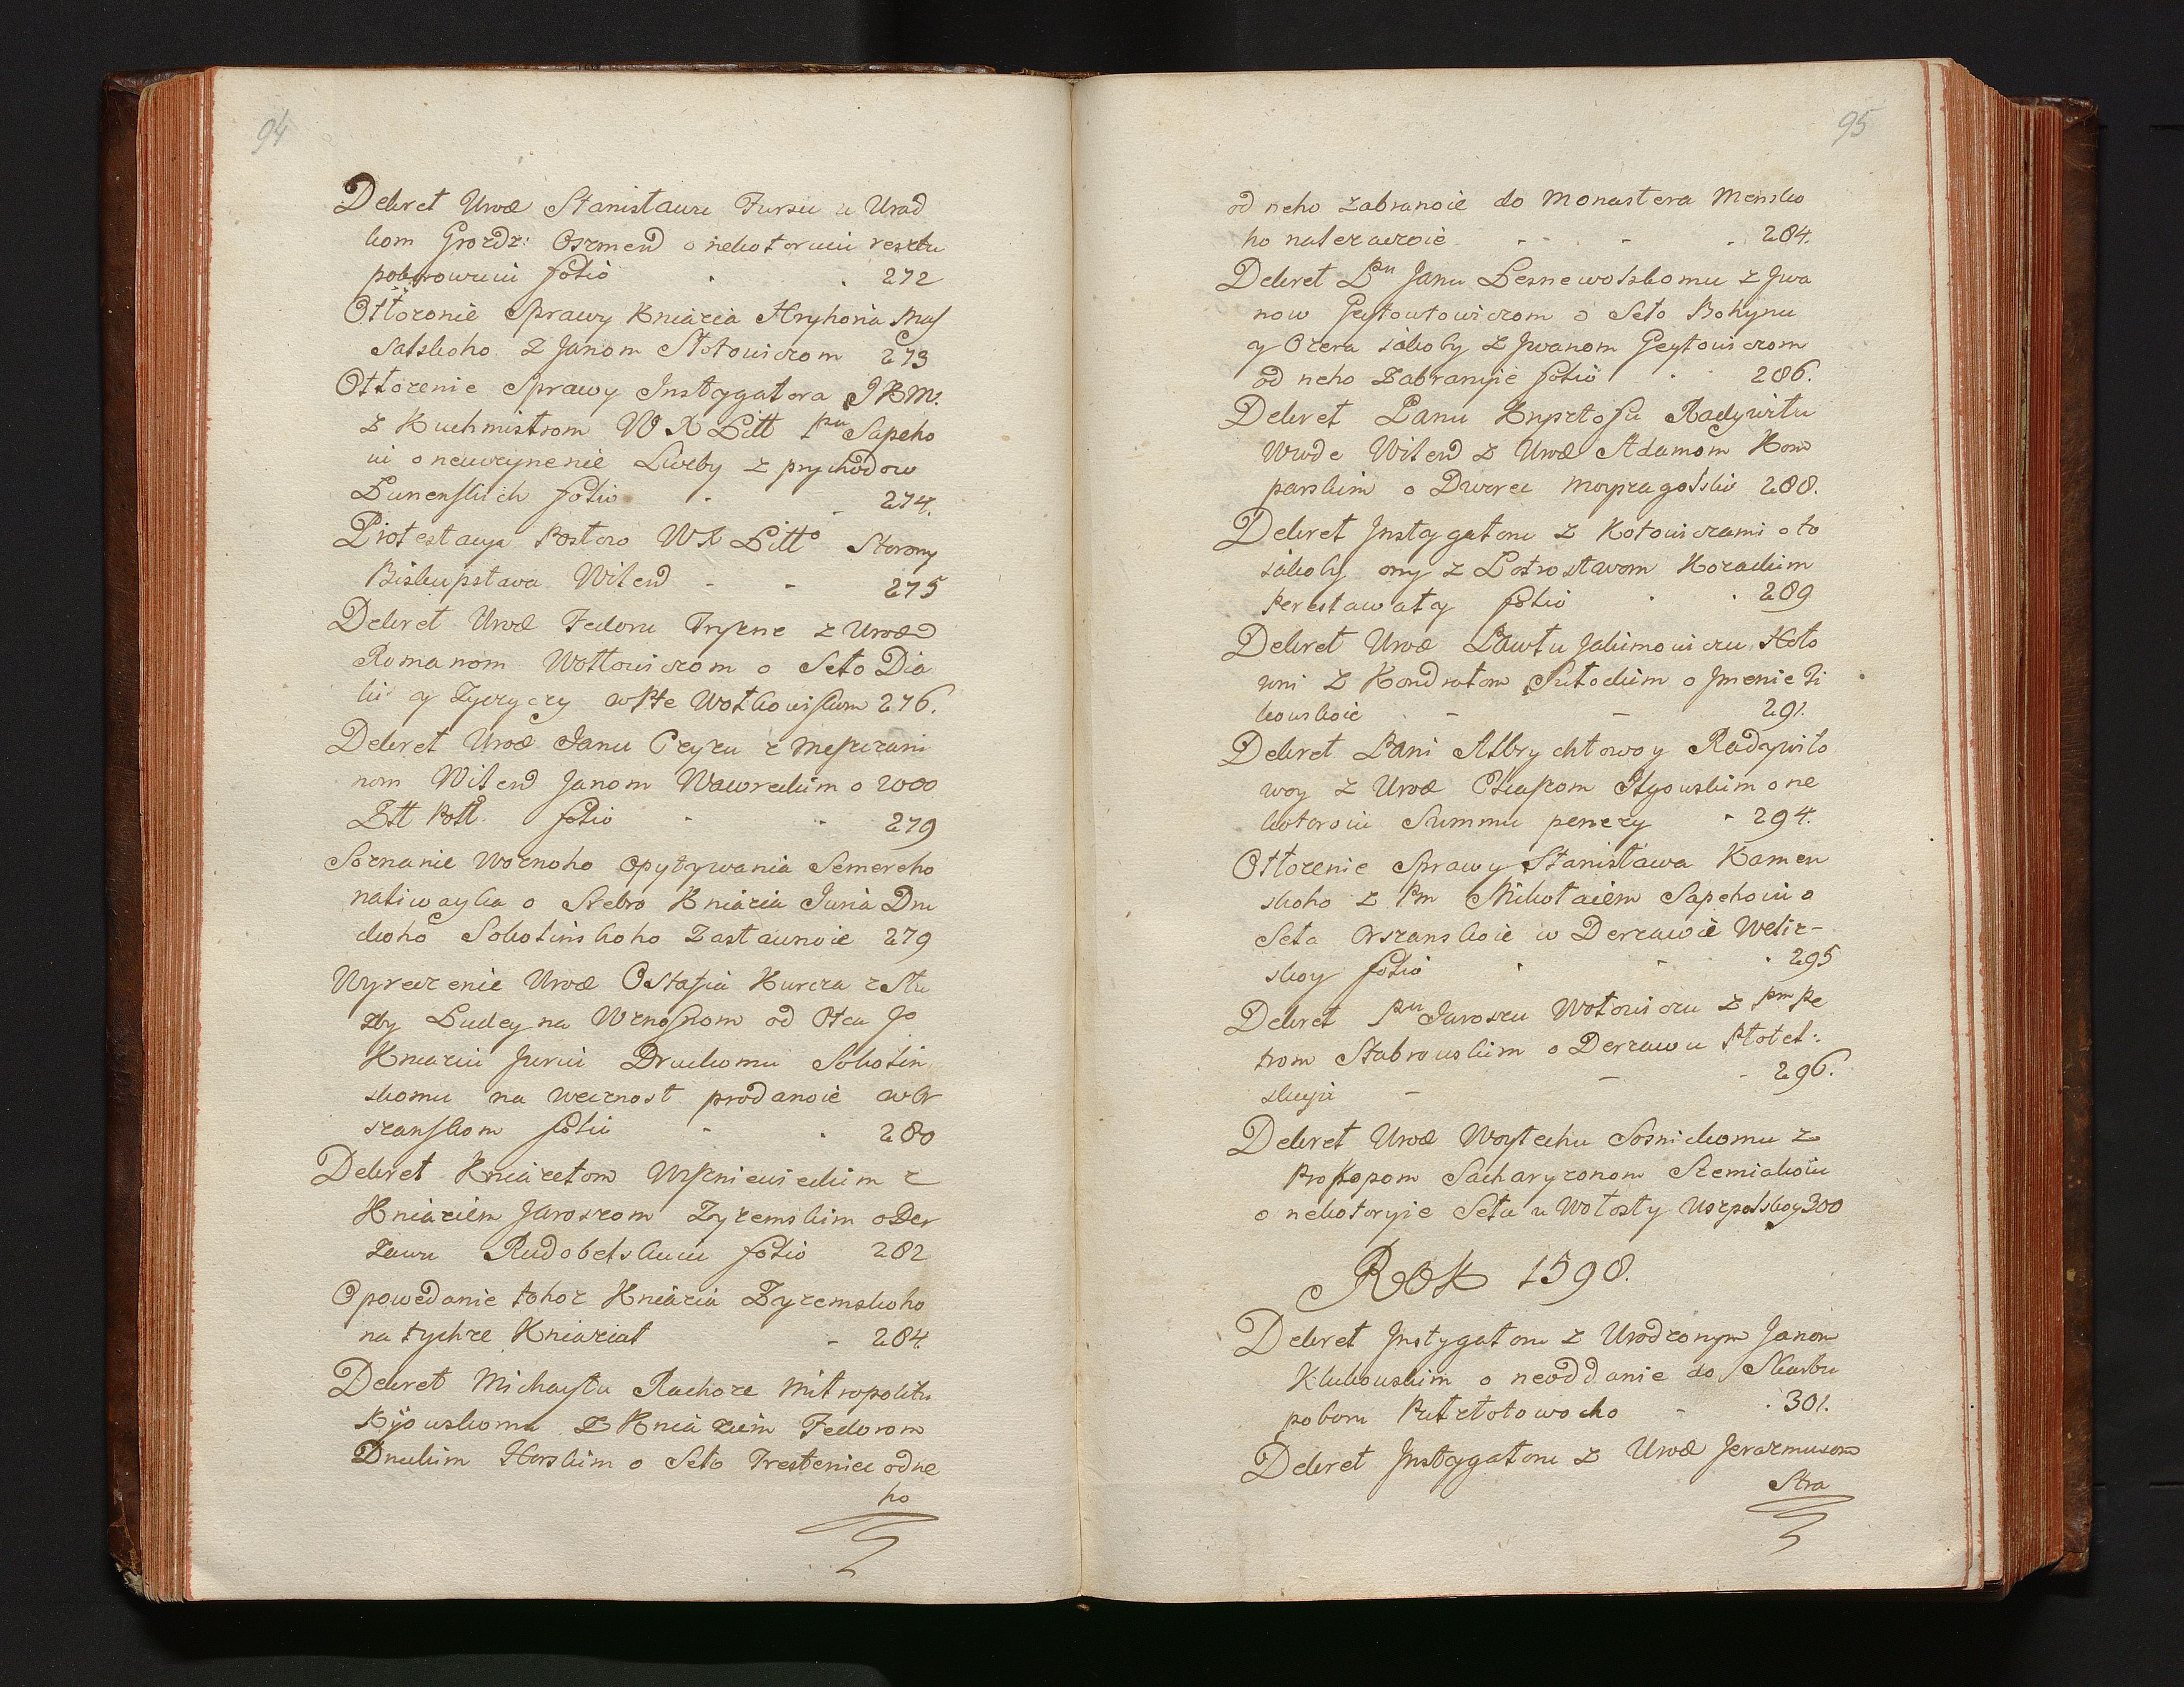 94
Dekret Urod Stanisławu Fursu z Urad
kom Grodz: Oszmend o nekotoruiu resztu
poborowuiu folio 272
Otłożenie Sprawy Kniazia Hryhoria Mas
salskoho Z Janom Stotowiczom 273
Otłożenie Sprawy Instygatora JKMi.
z Kuchmistrom W X Litt Pnu Sapeho
iu o neuczynenie Liczby z prychodow
Punenskich folio 274.
Protestacya Postow WX Litto Storony
Biskupstwa Wilend 275
Dekret Urod Fedoru Tryzne z Urod
Romanom Wołłowiczom o Seło Dia
ki y Zyczyczy w Pte Wołkowiskom 276.
Dekret Urod Janu Czyzu z Meszczani
nom Wilend Janom Wawreckim o 2000
Ztt Poll folio 279
Soznanie Woznoho Opytywania Semereho
naliwayka o Srebro Kniazia Juria Dru
ckoho Sokolinskoho Zastawnoie 279
Uyreczenie Urod Ostafia Kurcza z Słu
zby Ludeyna Wznosnom od Otca Jo
Kniaziu Juriu Druckomu Sokolin
skomu na wecznost prodanoie w Or
szanskom folio 280
Dekret Kniazetom Wiszniewieckim z
Kniaziem Jaroszom Zyzemskim o Der
zawu Rudobelskuiu folio 282
Opowedanie tohoz Kniazia Zyzemskoho
na tychze Kniaziat 284
Dekret Michayłu Rachoze Mitropolitu
Kijowskomu Z Kniaziem Fedorom
Druckim Horskim o Seło Trestenice od ne
ho
95
od neho zabranoie do Monastera Mensko
ho nalezaczoie 284.
Dekret Pnu Janu Lesnewolskomu z Jwa
now Geytowtowiczom o Seło Bohynu
y Ozera iakoby z Jwanom Geytowiczom
od neho Zabranyie folio 286.
Dekret Panu Krysztofu Radywiłu
Wwode Wilend z Urod Adamom Kom
parskim o Dworec Moyzagolski 288.
Dekret Jnstygatoru z Kotowiczami o to
iakoby ony z Lotrostwom Kozackim
Perestawaty folio 289
Dekret Urod Pawłu Jakimowiczu Hoło
wni z Kondratom Sutockim o Jmenie Ti
kowskoie 291.
Dekret Pani Albrychtowoy Radywiło
woy z Urod Czaszom Ilgowskim o ne
kotoroiu Summu penezy 294.
Otłożenie Sprawy Stanisława Kamen
skoho z Pm Mikołaiem Sapehoiu o
Seła Orszanskoie w Derzawie Weliz-
skoy folio 295
Dekret Pnu Jaroszu Wołowiczu z Pm Pe
trom Stabrowskim o Derzawu Płotel:
skuju 296.
Dekret Urod Woytechu Sosnickomu z
Prokopom Sacharyzonom Szemiakoiu
o nekotoryie Seła u Wołosty Uszpolskoy 300
Rok 1598.
Dekret Jnstygatoru z Urodzonym Janom
Klukowskim o neoddanie do Skarbu
poboru Putzłołowocho 301.
Dekret Jnstygatoru z Urod Jerazmusom
Stra